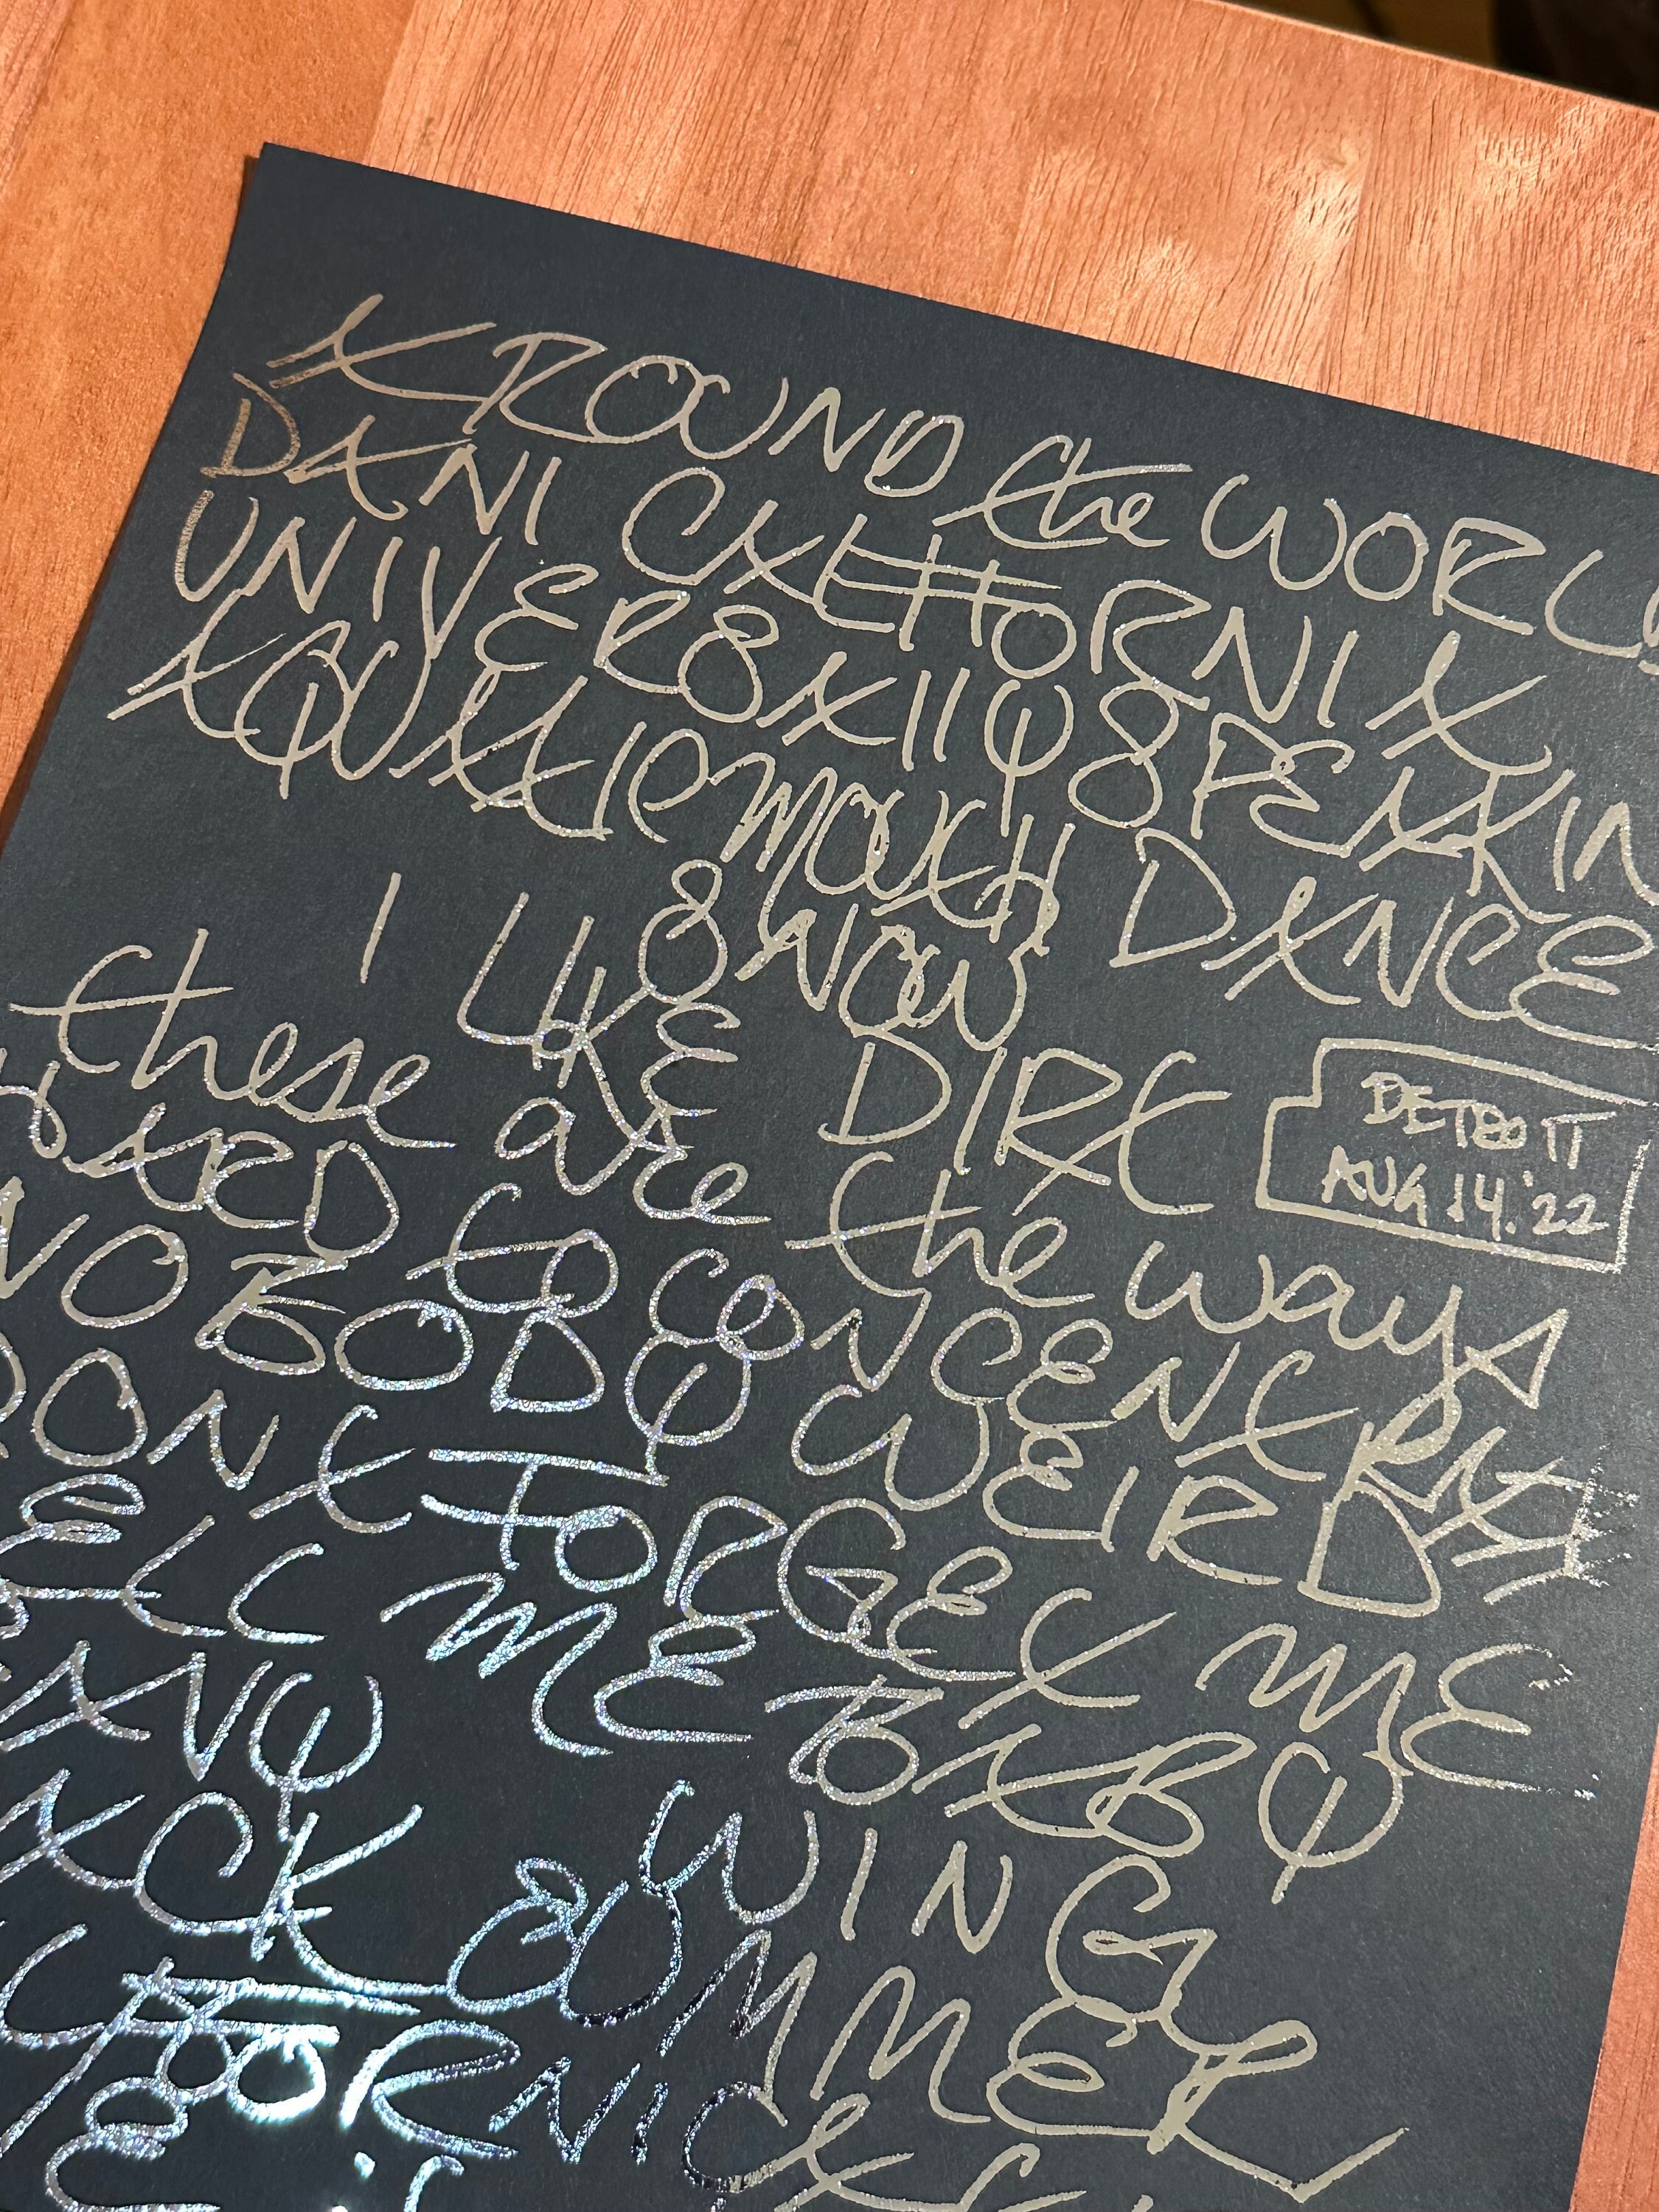 AROUND the WORLD
DANI CALIFORNIA
UNIVERSALLY SPEAKIN
AQUATIC MOUTH DANCE
SNOW
I LIKE DIRT
DETROIT
AUG 14.'22
these are the ways
HARD TO CONCENTRATE
NOBODY WEIRD
DONT FORGET ME
TELL ME BABY
WING
ACK SUMMER